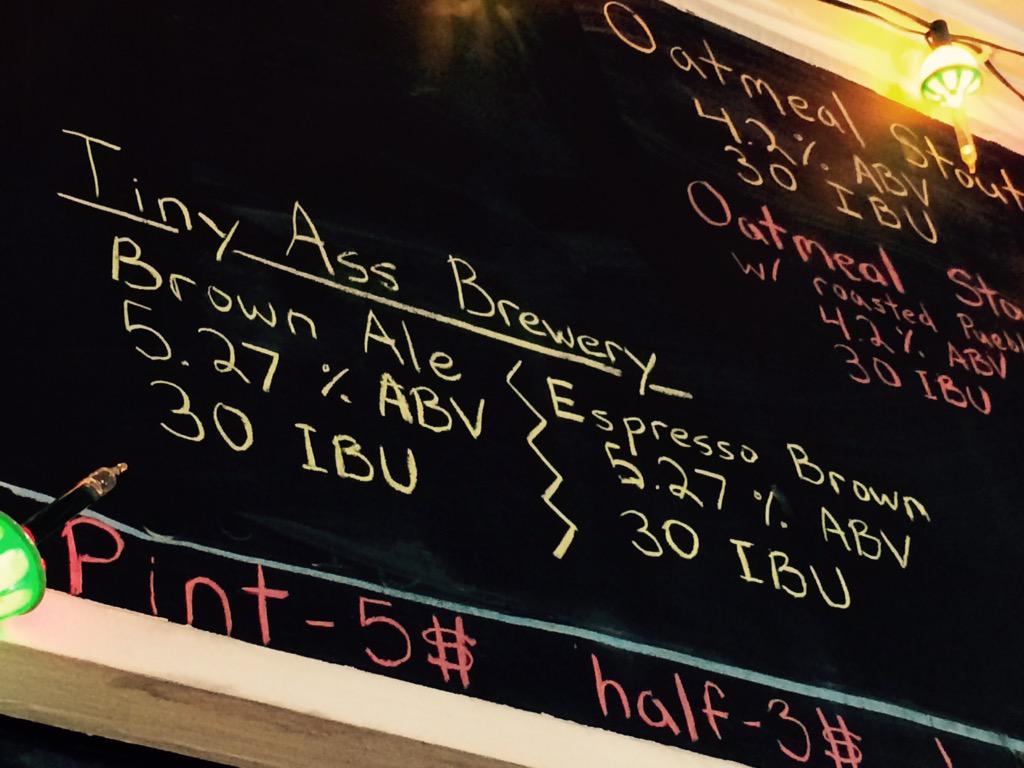 Oatmeal Stout
4.2% ABV
30 IBU
Oatmeal
w/ roasted
4.2% ABV
30 IBU
Tiny Ass Brewery
Brown Ale
5.27 % ABV
30 IBU
Espresso Brown
5.27 % ABV
30 IBU
Pint-5$ half-3$